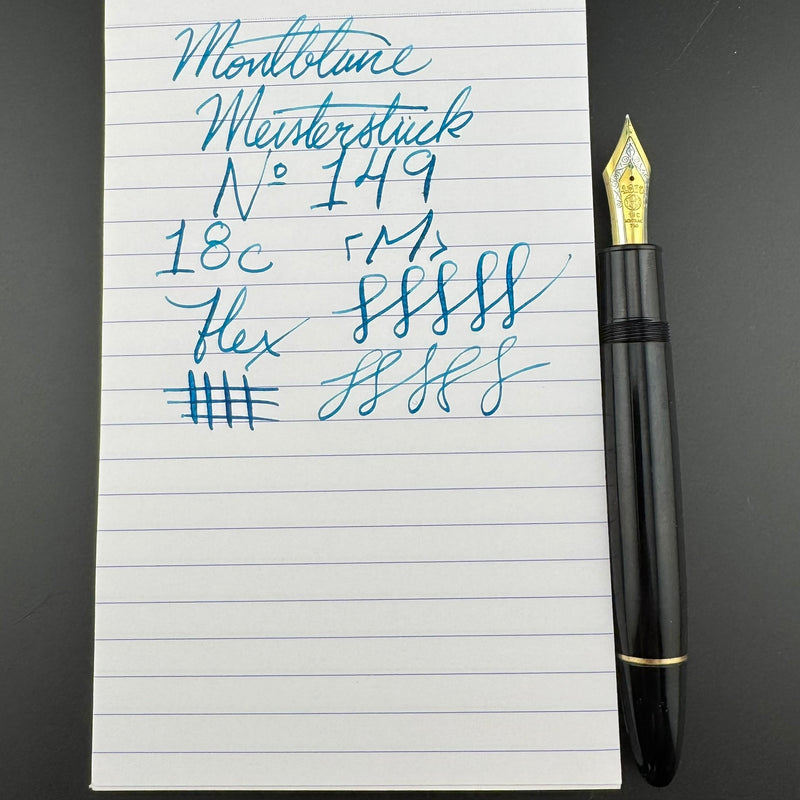 Montblanc
Meisterstück
Nº 149
18c <M>
Flex